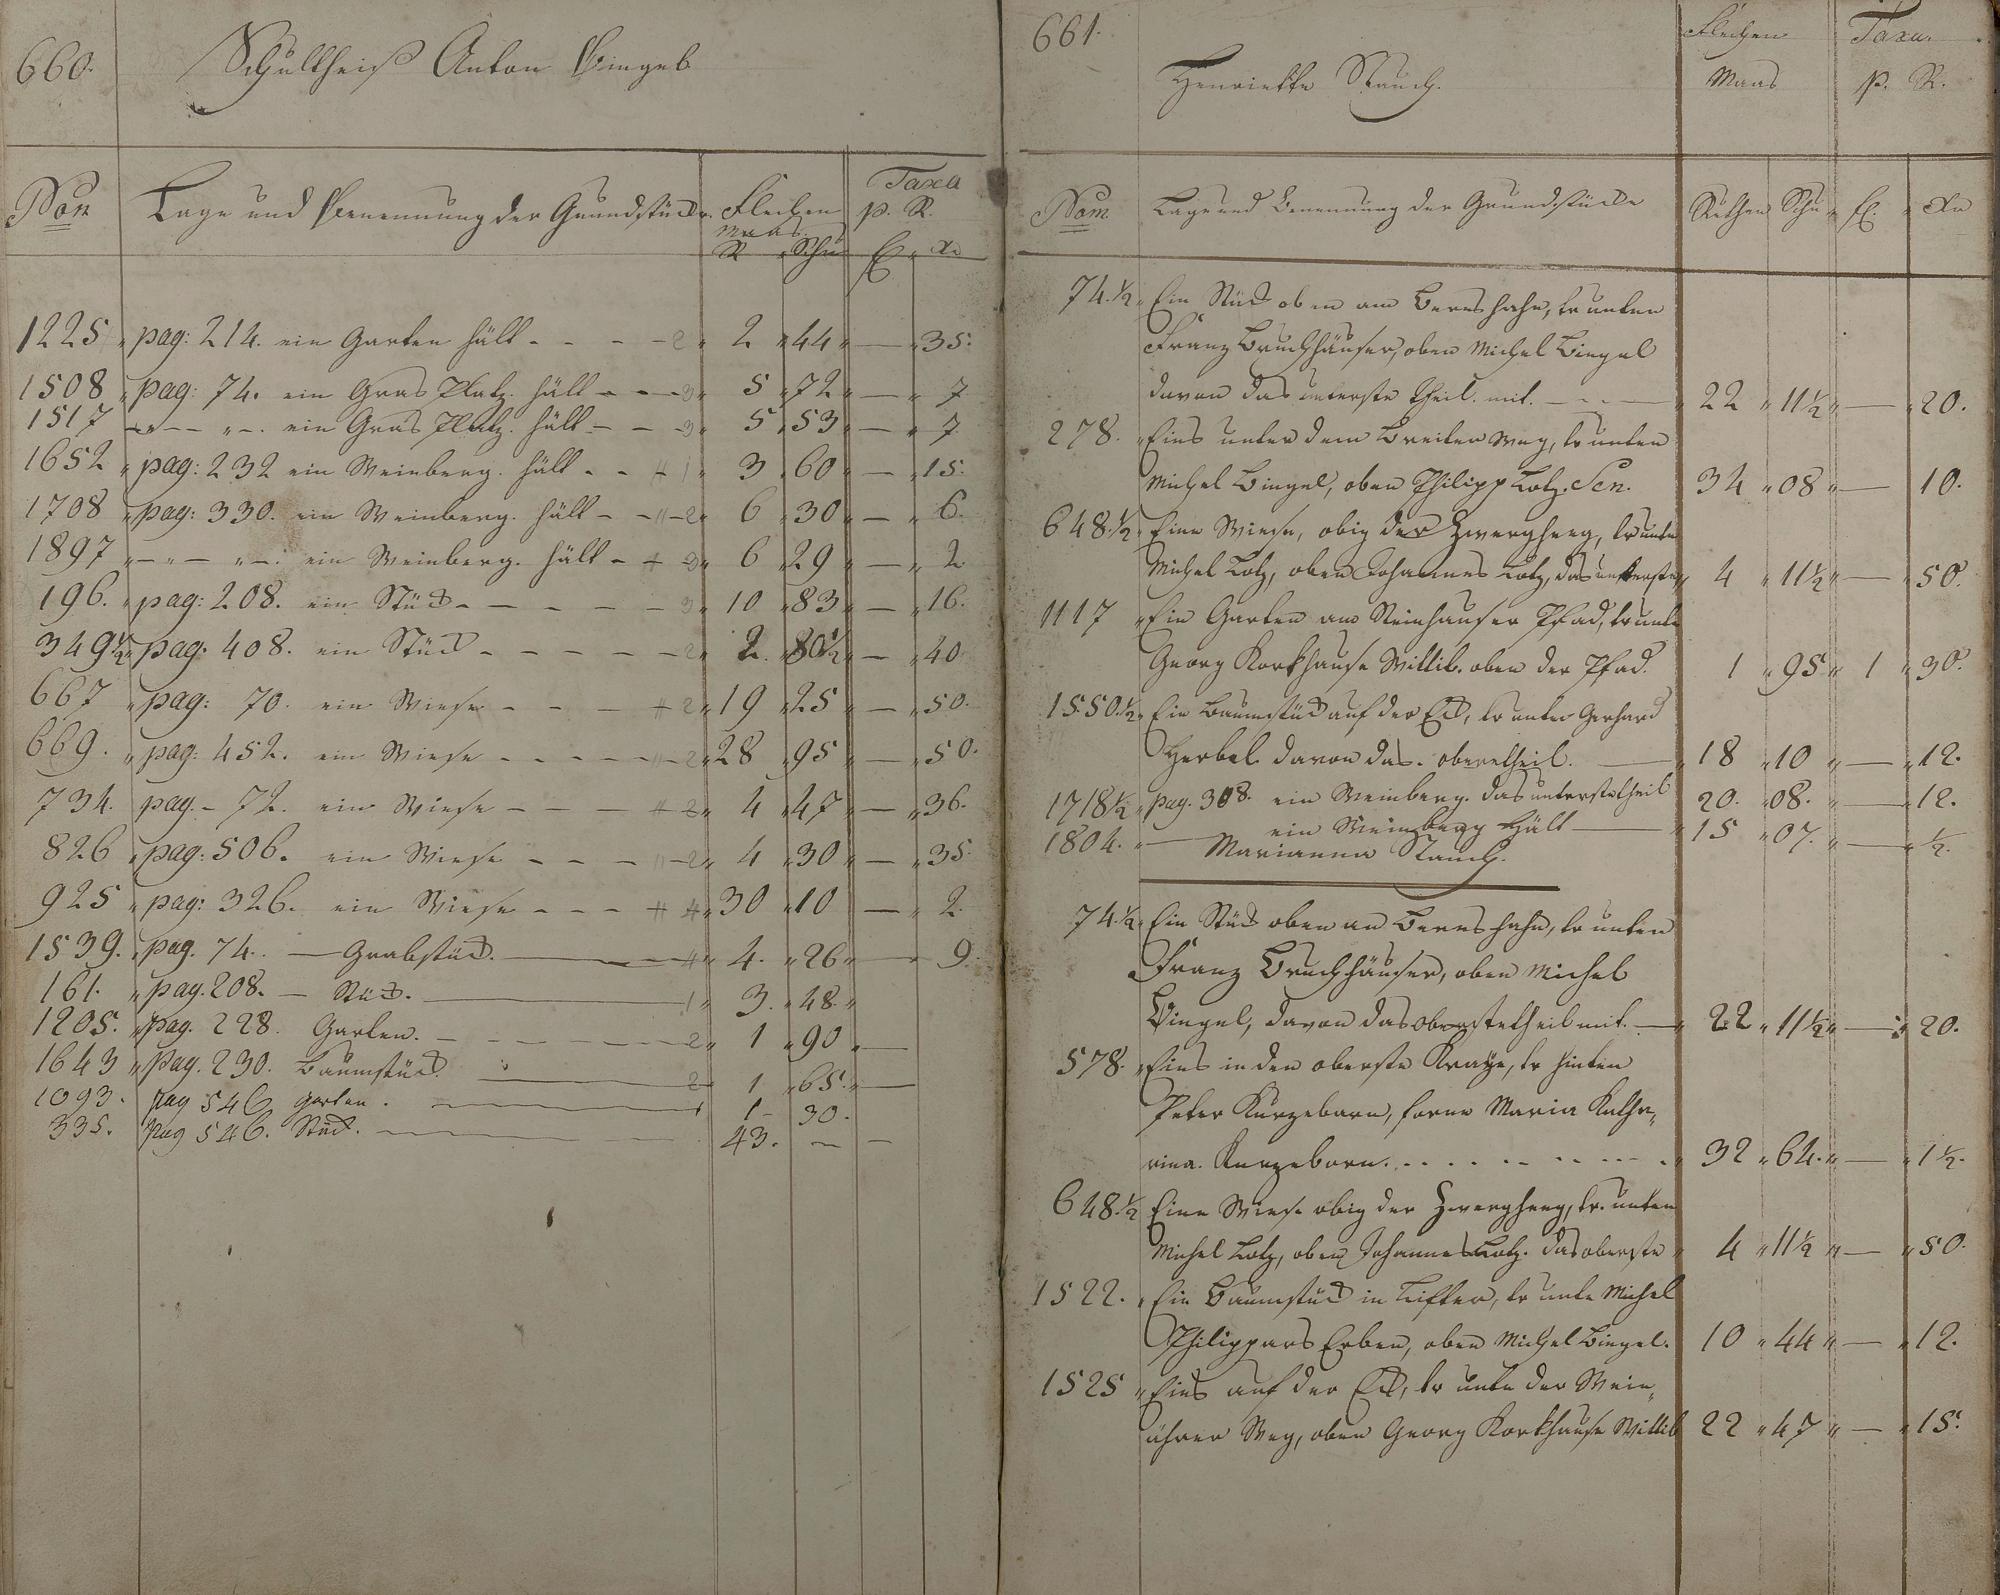 660.
Schultheiß Anton Bingel
Non
Lage und Benennung der Grundstücke.
Flechen
Maas.
R Schu
Taxa
p. R.
fl. Xr
1225 " pag: 214. ein Garten hält - - - - 2 " 2 " 44 " — " 35.
1508 " pag: 74. ein Gras Platz. hält - - - 3 " 5 " 72 " — " 7.
1517 - " - - " - . ein Gras Platz. hält - - 3 " 5 " 53 " — " 7.
1652 " pag: 232 ein Weinberg. hält - - 1 " 3 " 60 " — " 15.
1708 " pag: 330. ein Weinberg. hält - - 2 " 6 " 30 " — " 6.
1897 " - " - " - . ein Weinberg. hält - 3 " 6 " 29 " — " 2.
196. " pag: 208. ein Stück - - - - - 3 " 10 " 83 " — " 16.
349½ " pag. 408. ein Stück - - - - - 2 " 2. " 80½ " — " 40
667 " pag: 70. ein Wiese - - - 2 " 19 " 25 " — " 50.
669. " pag: 452. ein Wiese - - - - 2 " 28 " 95 " — " 50.
734. pag. - 72. ein Wiese - - - 2 " 4 " 47 " — " 36.
826 " pag: 506. ein Wiese - - - 2 " 4 " 30 " — " 35.
925 " pag: 326. ein Wiese - - - 4 " 30 " 10 — " 2.
1539. " pag. 74. — Grabstück. — 4 " 4. " 26 " — 9.
161. " pag. 208. — Stück. — 1 " 3. " 48. "
1205. " pag. 228. Garten. - - - - - 2 " 1 " 90 " —
1643 " pag. 230. Baumstück — 2 1 " 65. " —
1093. pag 546 garten. — 1 1 - 30.
335. pag 546. Stück. — 43. — —
661.
Henriette Stauch.
Flechen
Maas
Taxa.
p. R.
Nom.
Lage und Benennung der Grundstücke
Ruthen Schu " fl. " Xr
74.½ " Ein Stück oben am Bernshahn, br unten
Franz Bruchhäuser, oben Michel Bingel
davon das unterste Theil. mit. - - - — " 22 " 11½ " — " 20.
278. " Eins unter dem Breiten Weg, br unten
Michel Bingel, oben Philipp Lotz. Sen. 34 " 08 " — 10.
648.½ " Eine Wiese, obig der Zwergheeg, br unte
Michel Lotz, oben Johannes Lotz, das unterste " 4 " 11½ " — " 50.
1117 " Ein Garten am Steinhauser Pfad, br unte
Georg Korkhause Wittib. oben der Pfad. 1 " 95 " 1 " 30.
1550.½ " Ein Baumstück auf der Eck, br unter Gerhard
Herbel davon das. oberetheil. — " 18 " 10 " — " 12.
1718½ " pag. 308. ein Weinberg. das unterstetheil 20. " 08. " — " 12.
1804. " — ein Weinberg hält — " 15 " 07. " — " ½.
Marianna Stauch.
74.½ " Ein Stück oben an Bernshahn, br unten
Franz Bruchhäuser, oben Michel
Bingel, davon das oberstetheil mit. — " 22 " 11½ " — " 20.
578. " Eins in den oberste Kraye, br hinten
Peter Kurzeborn, forne Maria Katha-
rina. Kurzeborn. - - - - - - " 32 " 64. " — " 1½.
648.½ Eine Wiese obig der Zwergheeg, br. unten
Michel Lotz, oben Johannes Lotz. das oberste " 4 " 11½ " — " 50.
1522. " Ein Baumstück in Liffter, br unte Michel
Philippars Erben, oben Michel Bingel. 10 " 44 " — " 12.
1525 " Eins auf der Eck, br unte der Wein-
ährer Weg, oben Georg Korkhause Wittib 22 " 47 " — " 15.